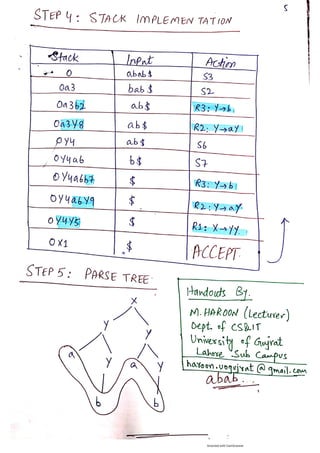 5
STEP 4: STACK IMPLEMENTATION
Stack Input Action
0 abab$ S3
0a3 bab$ S2
0a3b2 ab$ R3: Y→b
0a3Y8 ab$ R2: Y→aY
0Y4 ab$ S6
0Y4a6 b$ S7
0Y4a6b7 $ R3: Y→b
0Y4a6Y9 $ R2: Y→aY
0Y4Y5 $ R1: X→YY
0X1 $ ACCEPT
STEP 5: PARSE TREE
X
Y
Y
a
Y
a
Y
b
b
Handouts By.
M. HAROON (Lecturer)
Dept. of CS&IT
University of Gujrat
Lahore Sub Campus
haroon.uogujrat@gmail.com
abab...
Scanned with CamScanner